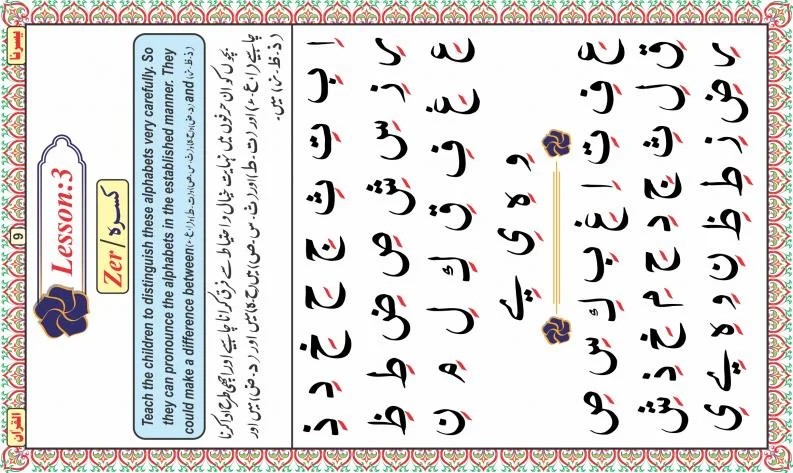 يسرنا 9 القرآن
Lesson:3
Zer/كسره
Teach the children to distinguish these alphabets very carefully. So
they can pronounce the alphabets in the established manner. They
could make a difference between and
بچوں کو ان حرفوں میں نہایت خیال و احتیاط سے فرق کرانا چاہیے اور اچھی طرح ادا کرنا
چاہیے (ا۔ع۔ء) اور (ت۔ط) اور (ث۔س۔ص) میں (ح۔ہ) میں اور (د۔ض) میں اور
(ذ۔ظ۔ز) میں۔
اِ بِ تِ ثِ جِ حِ خِ دِ ذِ
رِ زِ سِ شِ صِ ضِ طِ ظِ
عِ غِ فِ قِ كِ لِ مِ نِ
وِ هِ یِ ےِ
عِ فِ تِ اِ غِ بِ كِ سِ صِ
قِ لِ ثِ جِ دِ حِ مِ خِ ذِ شِ
رِ ضِ زِ طِ ظِ نِ وِ هِ ےِ یِ